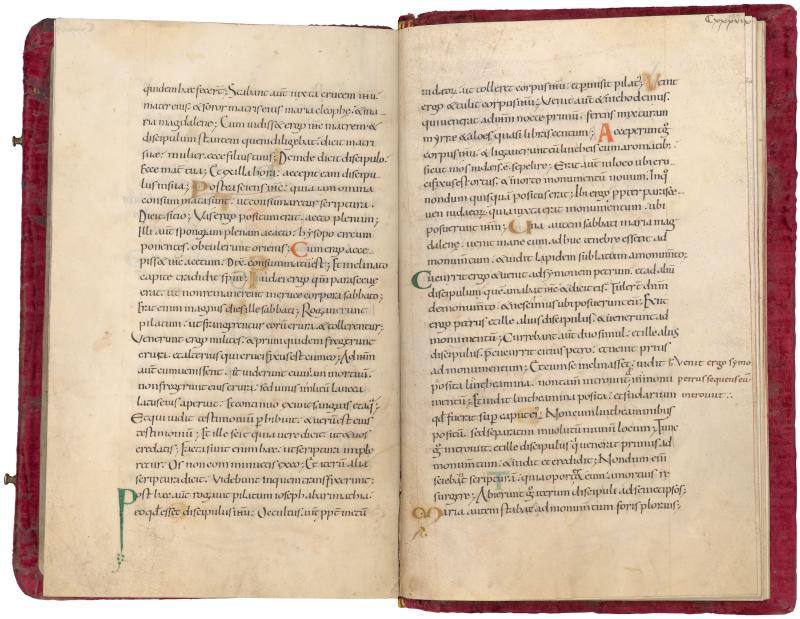 quidem haec fecert; Stabant aut iuxta crucem ihu
mater eius & soror matris eius maria cleophe & ma
ria magdalene; Cum uidiss& ergo ihc matrem &
discipulum stantem quem diligebat, dicit matri
suae, mulier ecce filius tuus; Deinde dicit discipulo.
Ecce mat tua; Et ex illa hora, accepit eam discipu
lus in sua; Postea sciens ihc quia iam omnia
consummata sunt, ut consummar&ur scriptura
Dicit sitio; Vas ergo positum erat, aceto plenum;
Illi aut spongiam plenam aceto, hysopo circum
ponentes, obtulerunt ori eius; Cum ergo acce
piss& ihc acetum. Dix consummatu est; Et inclinato
capite tradidit spm; Iudei ergo qm parasceue
erat, ut non remanerent in cruce corpora sabbato;
Erat enim magnus dies ille sabbati; Rogauerunt
pilatum, ut frangerentur eoru crura & tollerentur;
Venerunt ergo milites, & primi quidem fregerunt
crura, & alterius qui crucifixus est cum eo; Ad ihm
aut cum uenissent, ut uiderunt eum iam mortuu,
non fregerunt eius crura, sed unus militu lancea
latus eius aperuit, & continuo exiuit sanguis et aq;
Et qui uidit testimoniu perhibuit, & ueru est eius
testimoniu; Et ille scit quia uera dicit ut & uos
credatis; Facta sunt enim haec, ut scriptura imple
retur. Os non comminu&is ex eo; Et iteru alia
scriptura dicit. Videbunt in quem transfixerunt;
Post haec aut rogauit pilatum ioseph ab arimathia
eo qd ess& discipulus ihu; Occultus, aut ppt metu
Cxxxvıx
iudaeor, ut toller& corpus ihu; et pmisit pilat; Venit
ergo & tulit corpus ihu; Venit aut & nichodemus,
qui uenerat ad ihm nocte primu, ferens mixturam
myrrae & aloes, quasi libras centum; Acceperunt g
corpus ihu & ligauerunt eu lintheis cum aromatib;
sicut mos iudaeis e sepelire; Erat aut in loco ubi cru
cifixus est ortus, & in orto monumentu nouum. In q
nondum quisqua positus erat; Ibi ergo ppter parasce
uen iudaeor, quia iuxta erat monumentum, ubi
posuerunt ihm; Una autem sabbati maria mag
dalene, uenit mane cum adhuc tenebre essent ad
monumentum, & uidit lapidem sublatum a monumento;
Cucurrit ergo & uenit ad symonem petrum, et ad aliu
discipulum que amabat ihc & dicit eis. Tulert dnm
de monumento, & nescimus ubi posuerunt eu; Exiit
ergo petrus et ille alius discipulus, & uenerunt ad
monumentu; Currebant aut duo simul, et ille alius
discipulus pcucurrit citius petro, et uenit prius
ad monumentum; Et cum se inclinass& uidit
posita lintheamina, non tam introiuit in monu
mentu; Et uidit linteamina posita, et sudarium
qd fuerat sup caput ei; Non cum linteaminibus
positu, sed separatim inuolutu in unum locum; Tunc
g introiuit, et ille discipulus q uenerat primus ad
monumtum, & uidit et credidit; Nondum eni
sciebat scriptura, quia oport& eum, a mortuis re
surgere; Abierunt g iterum discipuli ad semetipsos;
Maria autem stabat ad monumentum foris plorans;
h. Venit ergo symo
petrus sequens eu
introiuit :.